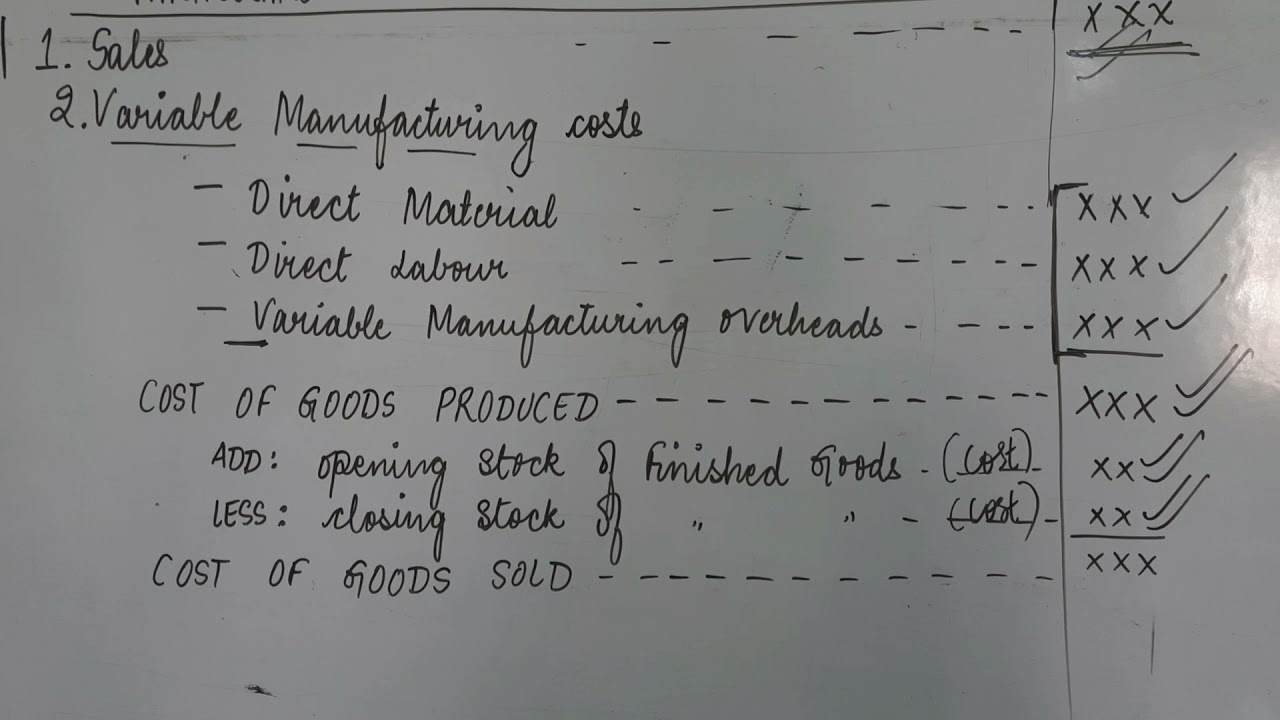 1. Sales - - - - - - - X X X
2. Variable Manufacturing costs
- Direct Material - - - - - - - X X X
- Direct Labour - - - - - - - - - X X X
- Variable Manufacturing overheads - - - - X X X
COST OF GOODS PRODUCED - - - - - - - - - - - - X X X
ADD: opening stock of Finished Goods - (cost) - X X
LESS: closing stock of " " - (cost) - X X
COST OF GOODS SOLD - - - - - - - - - - - X X X